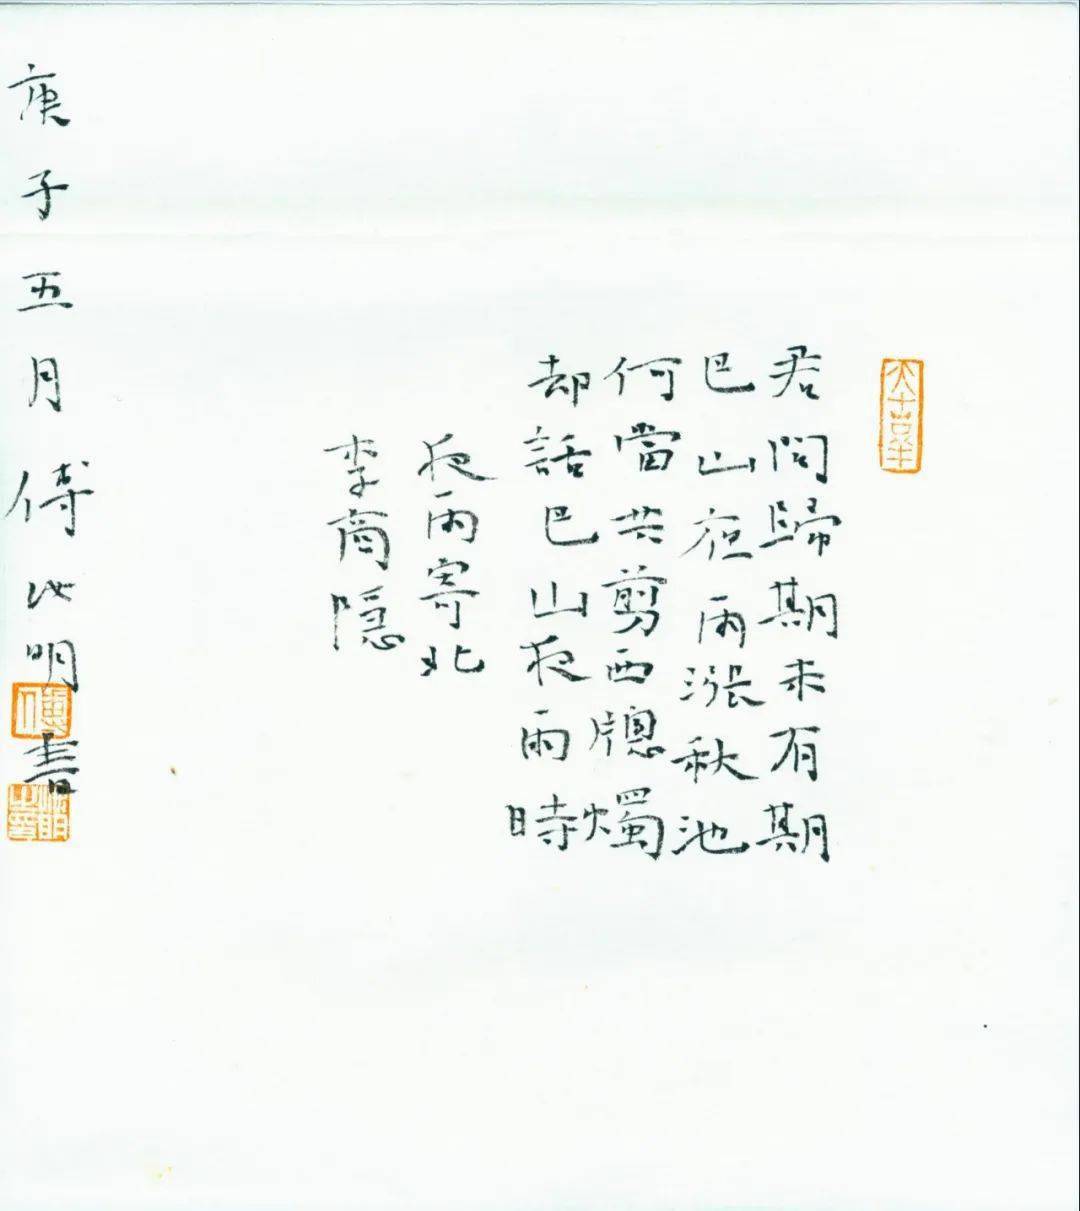 君問歸期未有期
巴山夜雨漲秋池
何當共剪西牕燭
却話巴山夜雨時
夜雨寄北
李商隱
庚子五月傅比明書